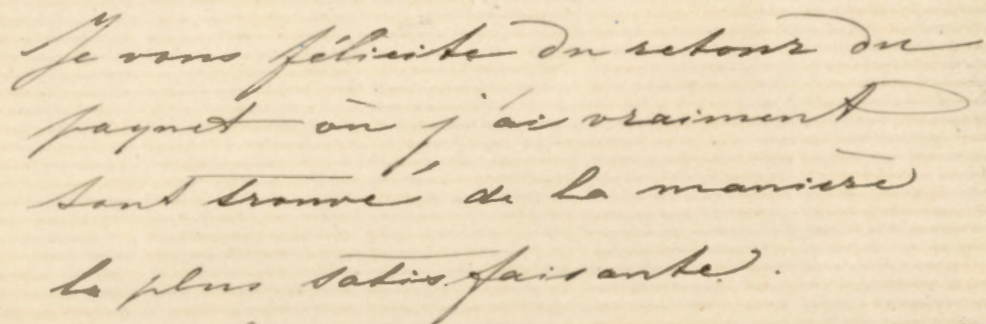 Je vous félicite du retour du
paquet où j'ai vraiment
tout trouvé de la manière
la plus satisfaisante.